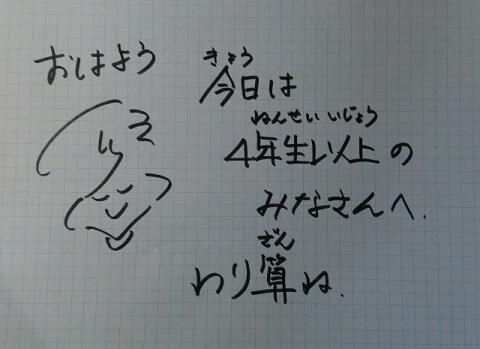 おはよう
きょう
今日は
ねんせいいじょう
4年生以上の
みなさんへ.
ざん
わり算ね.